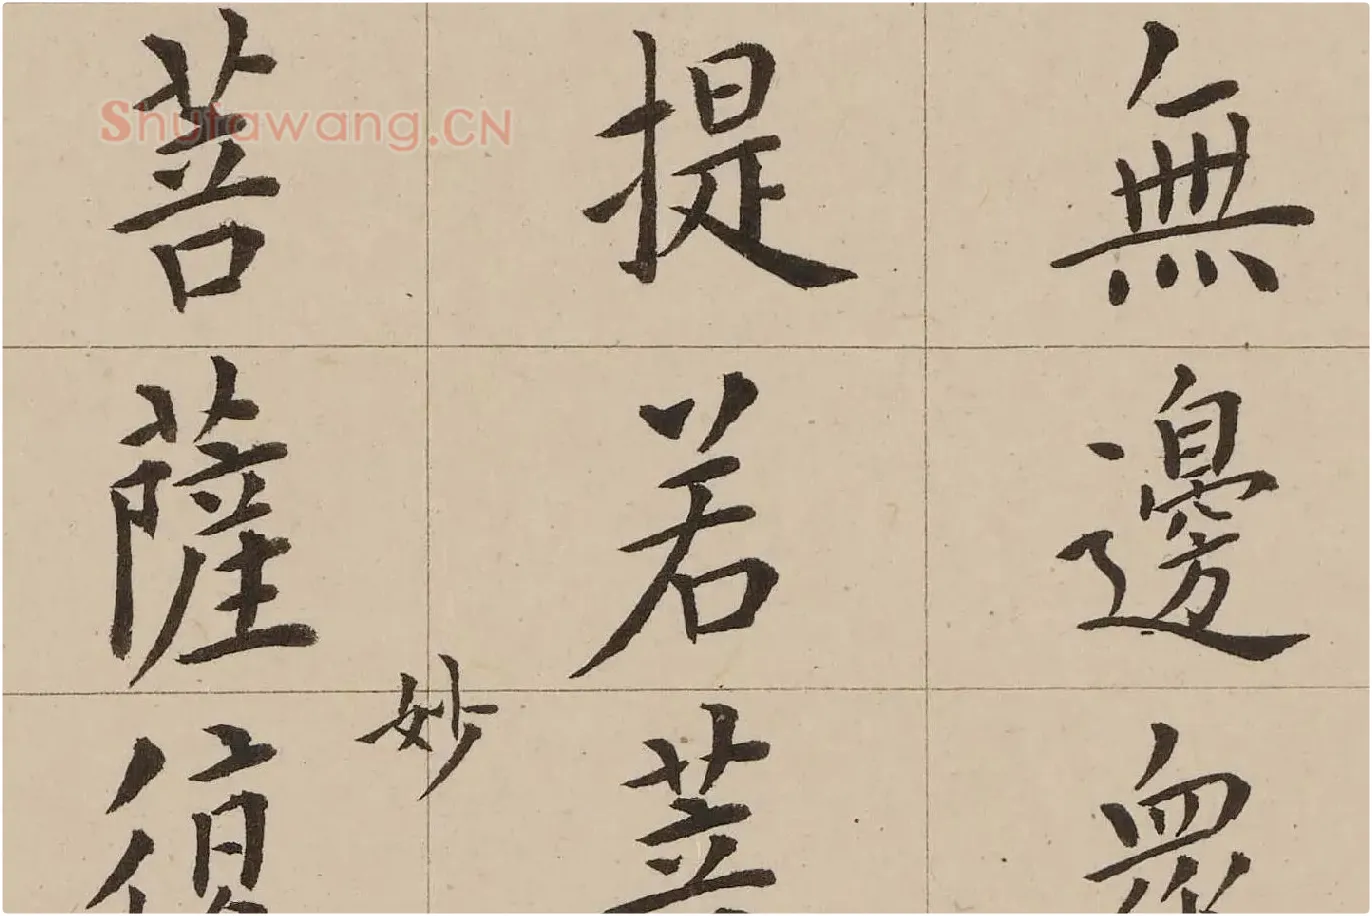 無邊眾
提若菩
菩薩須
妙
Shufawang.CN